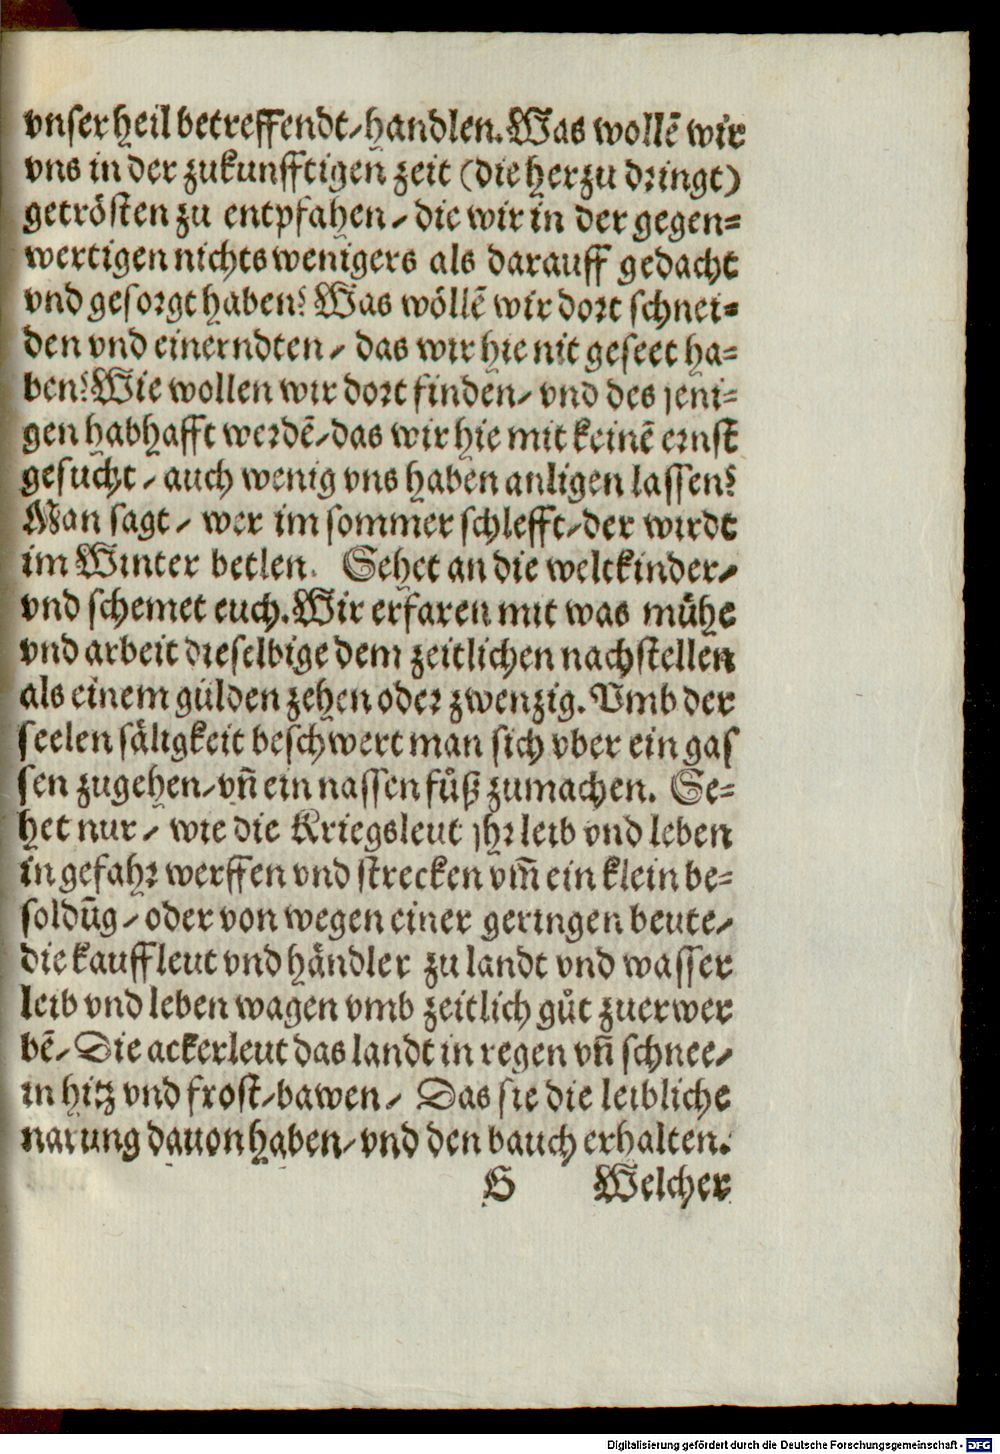 vnser heil betreffendt/ handlen. Was wollẽ wir
vns in der zukunfftigen zeit (die herzu dringt)
getrösten zu entpfahen/ die wir in der gegen=
wertigen nichts wenigers als darauff gedacht
vnd gesorgt haben? Was wöllẽ wir dort schnei=
den vnd einerndten/ das wir hie nit geseet ha=
ben? Wie wollen wir dort finden/ vnd des jeni=
gen habhafft werdẽ/ das wir hie mit keinẽ ernst
gesucht/ auch wenig vns haben anligen lassen?
Man sagt/ wer im sommer schlefft/ der wirdt
im Winter betlen. Sehet an die weltkinder/
vnd schemet euch. Wir erfaren mit was mühe
vnd arbeit dieselbige dem zeitlichen nachstellen
als einem gülden zehen oder zwenzig. Vmb der
seelen säligkeit beschwert man sich vber ein gas
sen zugehen/ vñ ein nassen fůß zumachen. Se=
het nur/ wie die Kriegsleut jhr leib vnd leben
in gefahr werffen vnd strecken vm̃ ein klein be=
soldũg/ oder von wegen einer geringen beute/
die kauffleut vnd händler zu landt vnd wasser
leib vnd leben wagen vmb zeitlich gůt zuerwer
bẽ/ Die ackerleut das landt in regen vñ schnee/
in hitz vnd frost/ bawen/ Das sie die leibliche
narung dauon haben/ vnd den bauch erhalten.
H Welcher
Digitalisierung gefördert durch die Deutsche Forschungsgemeinschaft - DFG